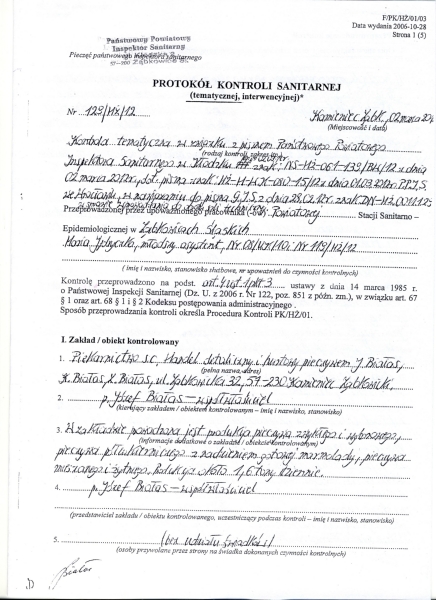 F/PK/HŻ/01/03
Data wydania 2006-10-28
Strona 1 (5)
Państwowy Powiatowy
Inspektor Sanitarny
Pieczęć państwowego inspektora sanitarnego
PROTOKÓŁ KONTROLI SANITARNEJ
(tematycznej, interwencyjnej)*
Nr 123/HŻ/12
Kamieniec Ząbk., 02 marca
(Miejscowość i data)
Kontrola tematyczna w związku z pismem Państwowego Powiatowego
(rodzaj kontroli, zakres)
Inspektora Sanitarnego w Kłodzku znak: NS-HŻ-061-133/BK/12 z dnia
02 marca 2012r., dot. pisma znak: z dnia 01.03.2012r. P.P.I.S.
we Wrocławiu, w nawiązaniu do pisma G.I.S z dnia 28.02.12r. znak:
Przeprowadzonej przez upoważnionego pracownika Powiatowej Stacji Sanitarno –
Epidemiologicznej w Ząbkowicach Śląskich
Maria młodszy asystent, Nr 119/HŻ/12
( imię i nazwisko, stanowisko służbowe, nr upoważnień do czynności kontrolnych)
Kontrolę przeprowadzono na podst. art. 4 ust. 1 pkt. 3 ustawy z 14 marca 1985 r.
o Państwowej Inspekcji Sanitarnej (Dz. U. z 2006 r. Nr 122, poz. 851 z późn. zm.), w związku z art. 67
§ 1 oraz art. 68 § 1 i § 2 Kodeksu postępowania administracyjnego .
Sposób przeprowadzania kontroli określa Procedura Kontroli PK/HŻ/01.
I. Zakład / obiekt kontrolowany
1. Piekarnictwo s.c. Handel detaliczny i hurtowy pieczywem J. Białas,
(pełna nazwa, adres)
K. Białas, Ł. Białas, ul. Ząbkowicka 32, 57-230 Kamieniec Ząbkowicki
2. p. Józef Białas – współwłaściciel
(kierujący zakładem / obiektem kontrolowanym – imię i nazwisko, stanowisko)
3. W zakładzie prowadzona jest produkcja pieczywa zwykłego i wyborowego,
(informacje dodatkowe o zakładzie / obiekcie kontrolowanym)
pieczywa półcukierniczego z nadzieniem gotowej marmolady, pieczywa
mieszanego i żytniego. Produkcja około 1,6 tony dziennie.
4. p. Józef Białas – współwłaściciel
(przedstawiciel zakładu / obiektu kontrolowanego, uczestniczący podczas kontroli – imię i nazwisko, stanowisko)
5. (bez udziału świadków)
(osoby przywołane przez strony na świadka dokonanych czynności kontrolnych)
Białas